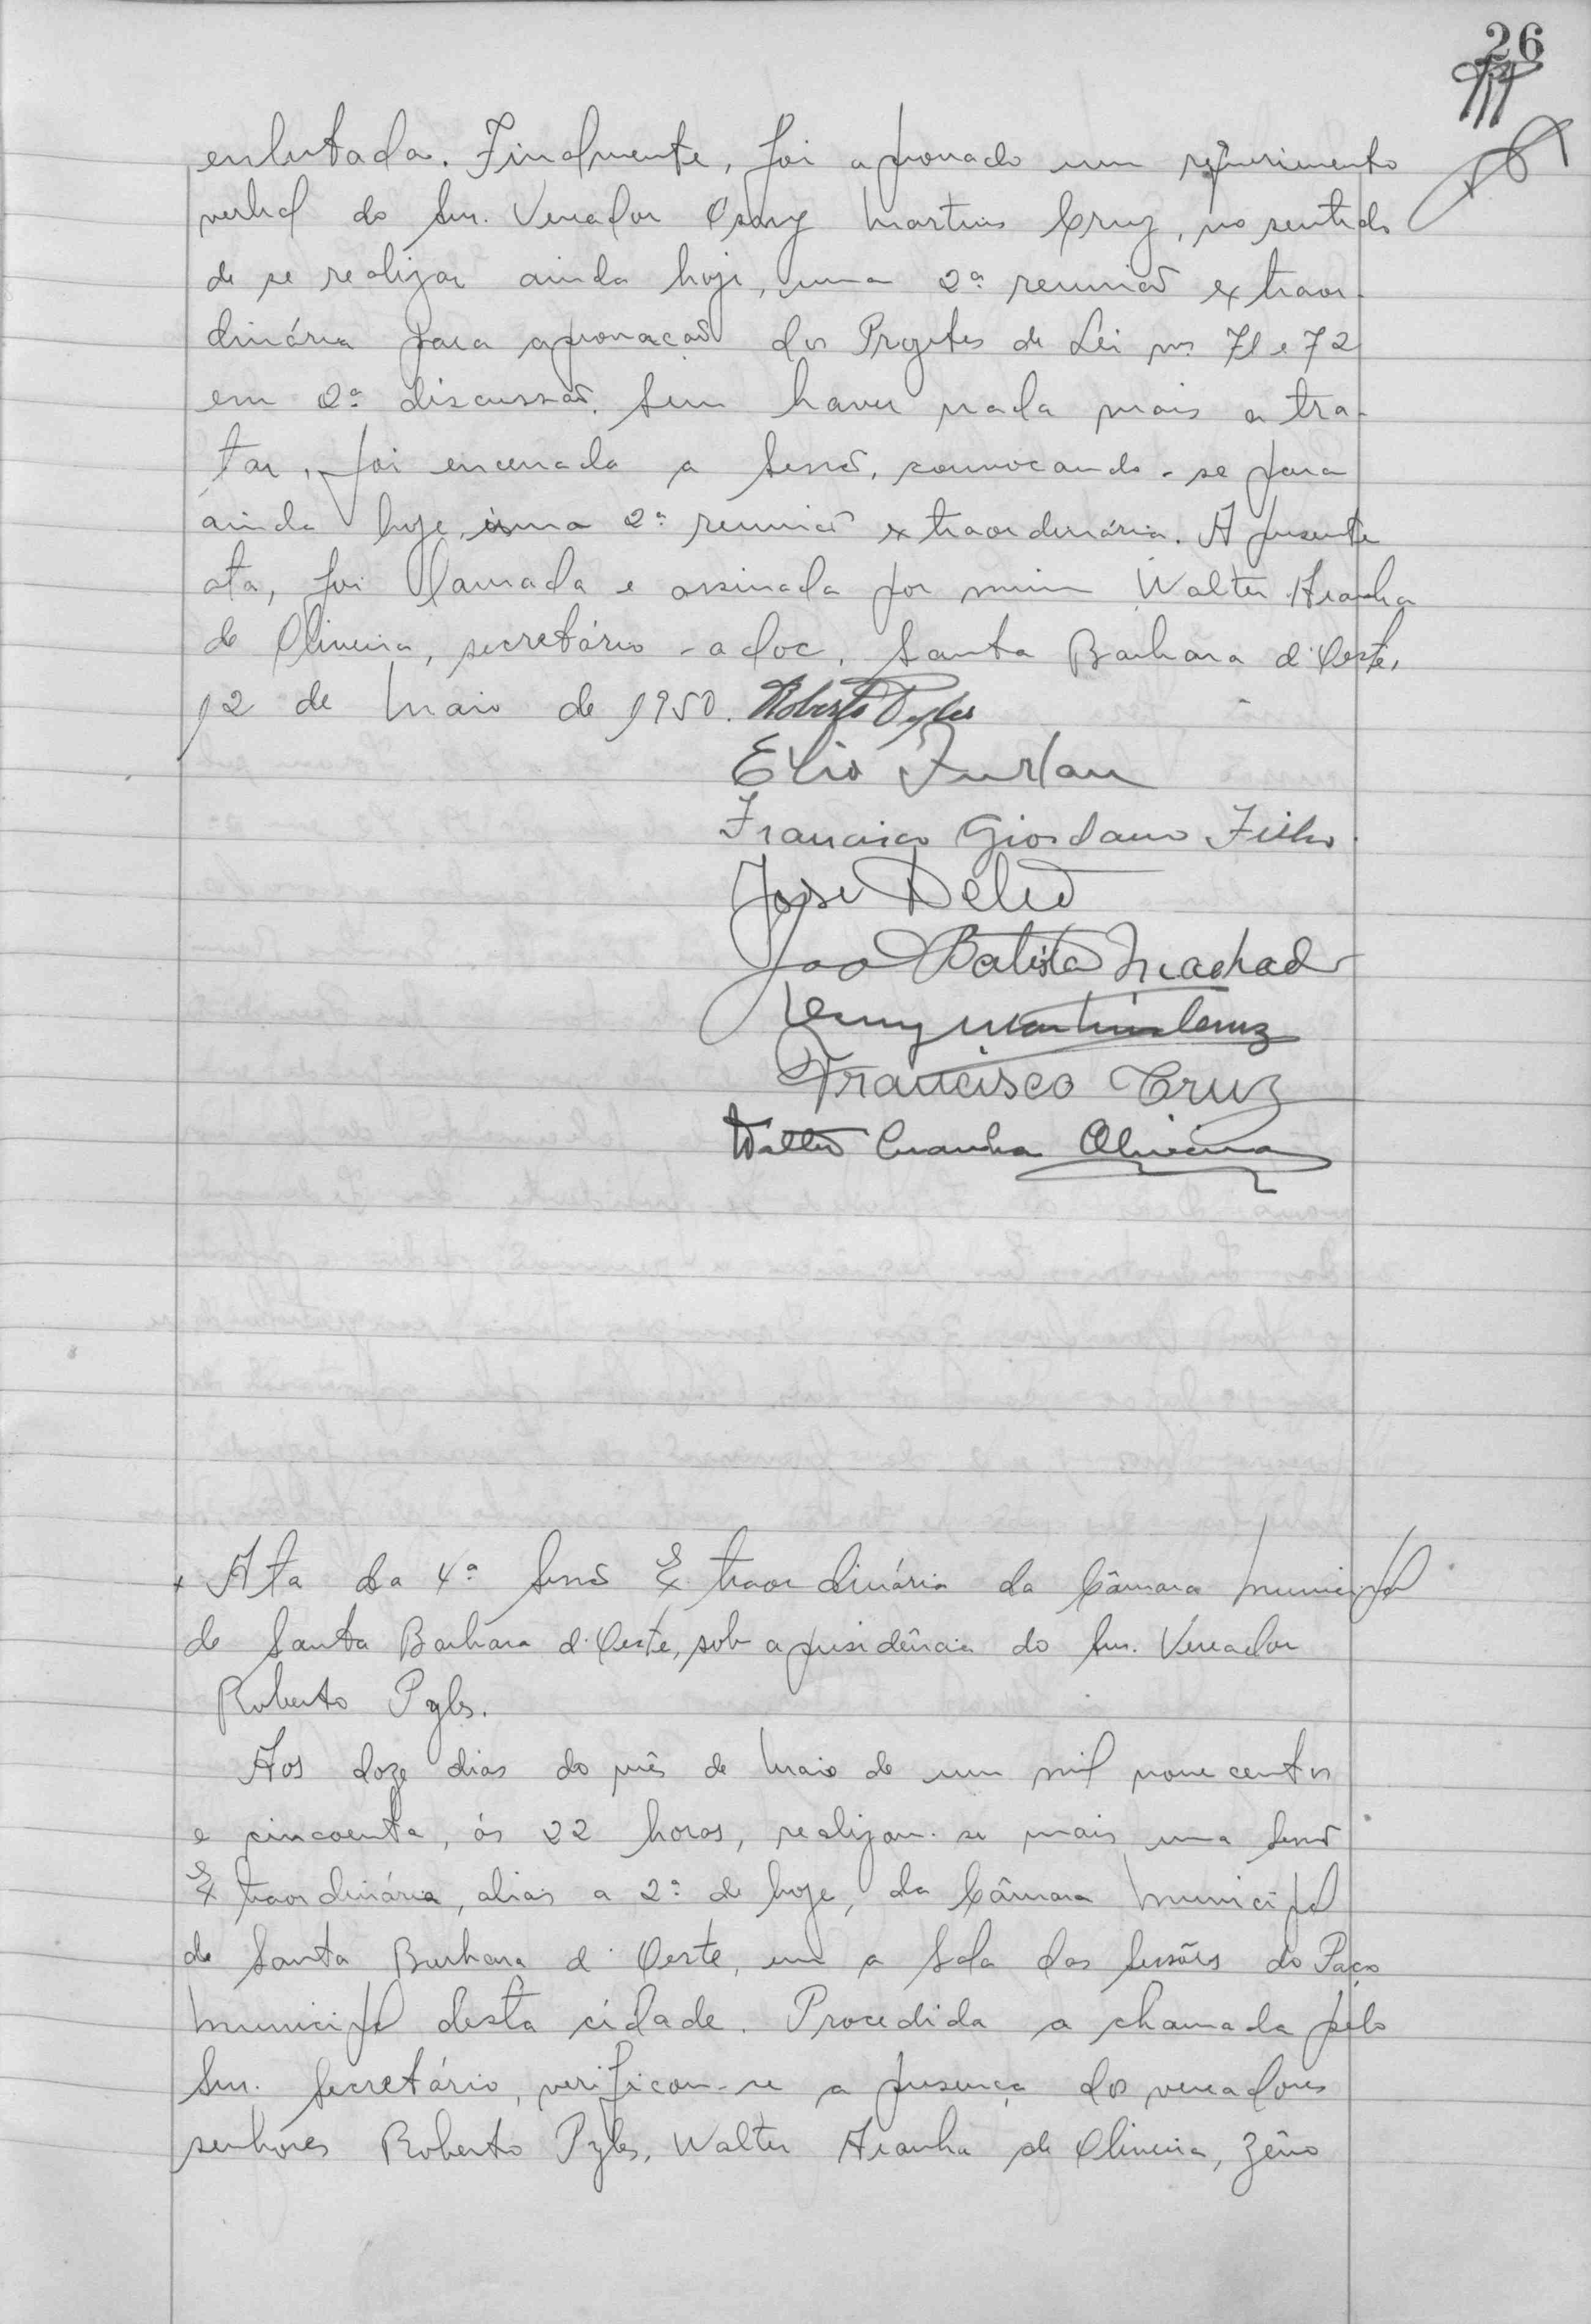 26
enlutada. Finalmente, foi aprovado um requerimento
verbal do Snr. Vereador Osny Martins Cruz, no sentido
de se realizar ainda hoje, uma 2ª reunião extraor-
dinária para aprovação dos Projetos de Lei nos 71 e 72
em 2ª discussão. Sem haver nada mais a tra-
tar, foi encerrada a Sessão, convocando-se para
ainda hoje, uma 2ª reunião extraordinária. A presente
ata, foi lavrada e assinada por mim Walter Aranha
de Oliveira, secretário-adoc, Santa Barbara d'Oeste,
12 de Maio de 1950. Roberto Pyles
Elio Furlan
Francisco Giordano Filho
José
João Batista Machado
Martins Cruz
Francisco Cruz
Walter Aranha Oliveira
Ata da 4ª Sessão Extraordinária da Câmara Municipal
de Santa Barbara d'Oeste, sob a presidência do Snr. Vereador
Roberto Pyles.
Aos doze dias do mês de Maio de um mil novecentos
e cincoenta, ás 22 horas, realizou-se mais uma Sessão
Extraordinária, alias a 2ª de hoje, da Câmara Municipal
de Santa Barbara d'Oeste, em a Sala das Sessões do Paço
Municipal desta cidade. Procedida a chamada pelo
Snr. Secretário, verificou-se a presença dos vereadores
senhores Roberto Pyles, Walter Aranha de Oliveira, Zêno